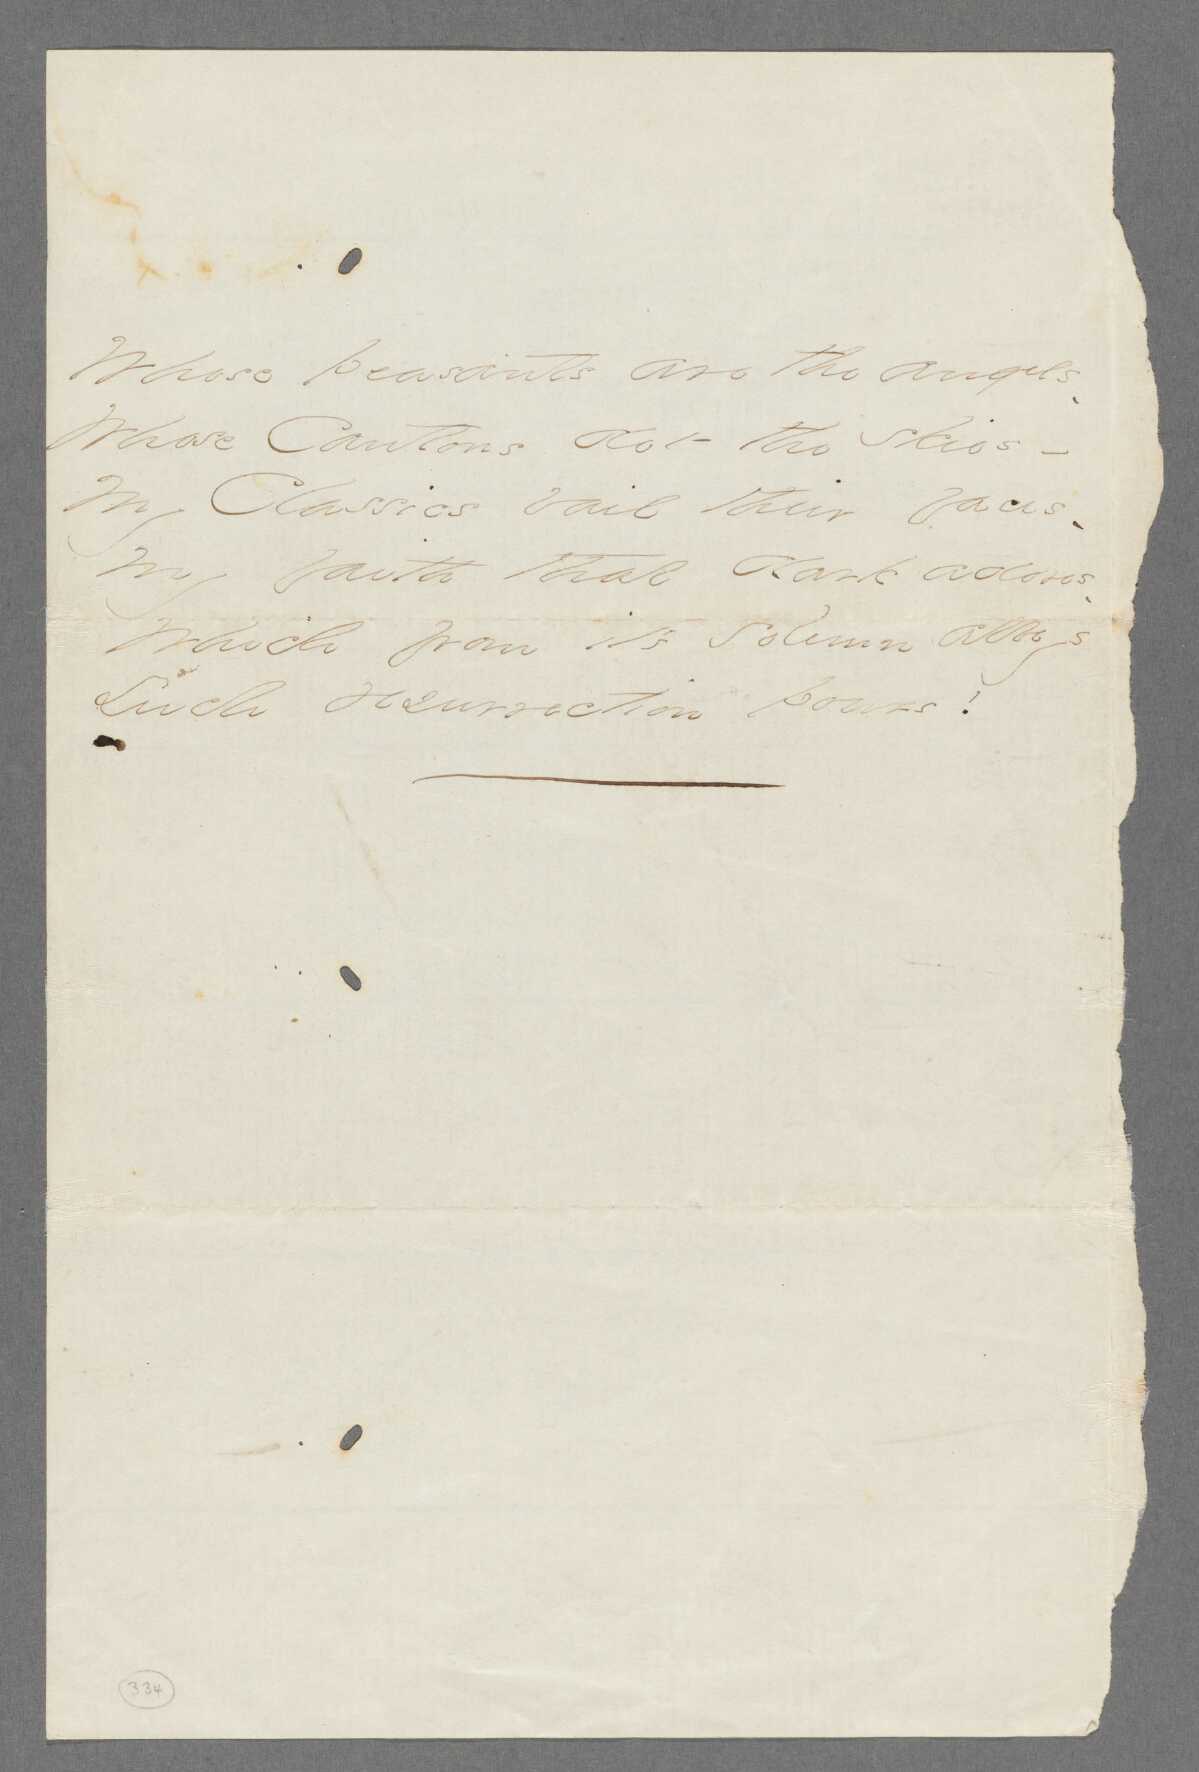 Whose peasants are the angels.
Whose Cantons dot the skies -
My Classics vail their faces.
My faith that Dark adores.
Which from it's solemn abbeys
Such resurrection pours!
334